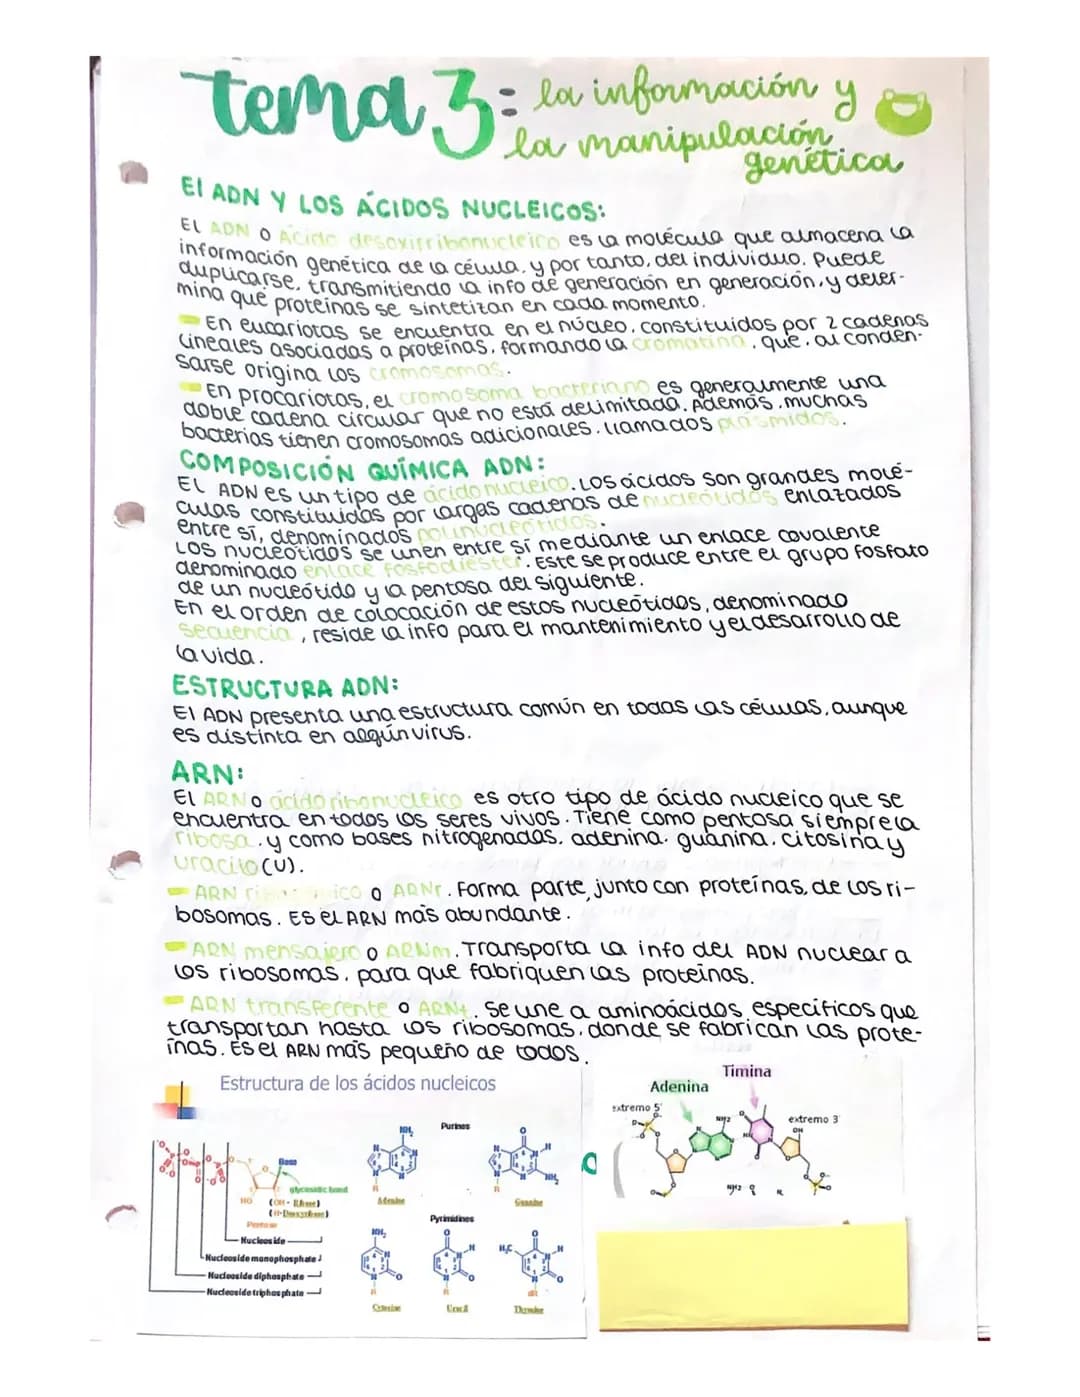 tema 3: la información y
la manipulación
genética
El ADN Y LOS ÁCIDOS NUCLEICOS:
El ADN o Ácido desoxirribonucleico es la molécula que almacena la
información genética de la célula, y por tanto, del individuo. Puede
duplicarse, transmitiendo la info de generación en generación, y deter-
mina qué proteínas se sintetizan en cada momento.
En eucariotas se encuentra en el núcleo, constituidos por 2 cadenas
lineales asociadas a proteínas, formando la cromatina, que, al conden-
sarse origina los cromosomas.
En procariotas, el cromosoma bacteriano es generalmente una
doble cadena circular que no está delimitada. Además, muchas
bacterias tienen cromosomas adicionales, llamados plásmidos.
COMPOSICIÓN QUÍMICA ADN:
El ADN es un tipo de ácido nucleico. Los ácidos son grandes molé-
culas constituidas por largas cadenas de nucleótidos enlazados
entre sí, denominados polinucleótidos.
Los nucleótidos se unen entre sí mediante un enlace covalente
denominado enlace fosfodiéster. Este se produce entre el grupo fosfato
de un nucleótido y la pentosa del siguiente.
En el orden de colocación de estos nucleótidos, denominado
secuencia, reside la info para el mantenimiento y el desarrollo de
la vida.
ESTRUCTURA ADN:
El ADN presenta una estructura común en todas las células, aunque
es distinta en algún virus.
ARN:
El ARN o ácido ribonucleico es otro tipo de ácido nucleico que se
encuentra en todos los seres vivos. Tiene como pentosa siempre la
ribosa, y como bases nitrogenadas, adenina, guanina, citosina y
uracilo (U).
ARN o ARNr. Forma parte, junto con proteínas, de los ri-
bosomas. Es el ARN más abundante.
ARN mensajero o ARNm. Transporta la info del ADN nuclear a
los ribosomas, para que fabriquen las proteínas.
ARN transferente o ARNt. Se une a aminoácidos específicos que
transportan hasta los ribosomas, donde se fabrican las prote-
ínas. Es el ARN más pequeño de todos.
Estructura de los ácidos nucleicos
Base
glycosidic bond
HO
(OH - Ribose)
(H-Deoxyribose)
Pentose
Nucleoside
Nucleoside monophosphate
Nucleoside diphosphate
Nucleoside triphosphate
Purines
NH₂
Adenine
Guanine
Pyrimidines
NH₂
H₃C
Cytosine
Uracil
Thymine
Timina
Adenina
extremo 5'
extremo 3'
NH2
OH